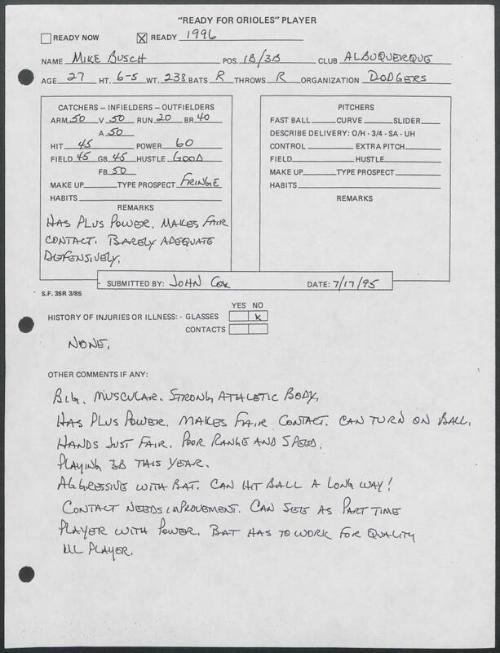 "READY FOR ORIOLES" PLAYER
READY NOW READY 1996
NAME MIKE BUSCH POS 1B/3B CLUB ALBUQUERQUE
AGE 27 HT. 6-5 WT. 238 BATS R THROWS R ORGANIZATION DODGERS
CATCHERS - INFIELDERS - OUTFIELDERS
ARM 50 V .50 RUN 20 BR 40
A .50
HIT 45 POWER 60
FIELD 45 GB 45 HUSTLE GOOD
FB 50
MAKE UP TYPE PROSPECT FRINGE
HABITS
REMARKS
HAS PLUS POWER. MAKES FAIR
CONTACT. BARELY ADEQUATE
DEFENSIVELY.
PITCHERS
FAST BALL CURVE SLIDER
DESCRIBE DELIVERY: O/H - 3/4 - SA - UH
CONTROL EXTRA PITCH
FIELD HUSTLE
MAKE UP TYPE PROSPECT
HABITS
REMARKS
SUBMITTED BY: JOHN COX DATE: 7/17/95
S.F. 3SR 3/86
YES NO
HISTORY OF INJURIES OR ILLNESS: - GLASSES X
CONTACTS
NONE.
OTHER COMMENTS IF ANY:
BIG. MUSCULAR. STRONG ATHLETIC BODY.
HAS PLUS POWER. MAKES FAIR CONTACT. CAN TURN ON BALL.
HANDS JUST FAIR. POOR RANGE AND SPEED.
PLAYING 3B THIS YEAR.
AGGRESSIVE WITH BAT. CAN HIT BALL A LONG WAY!
CONTACT NEEDS IMPROVEMENT. CAN SEE AS PART TIME
PLAYER WITH POWER. BAT HAS TO WORK FOR QUALITY
ML PLAYER.